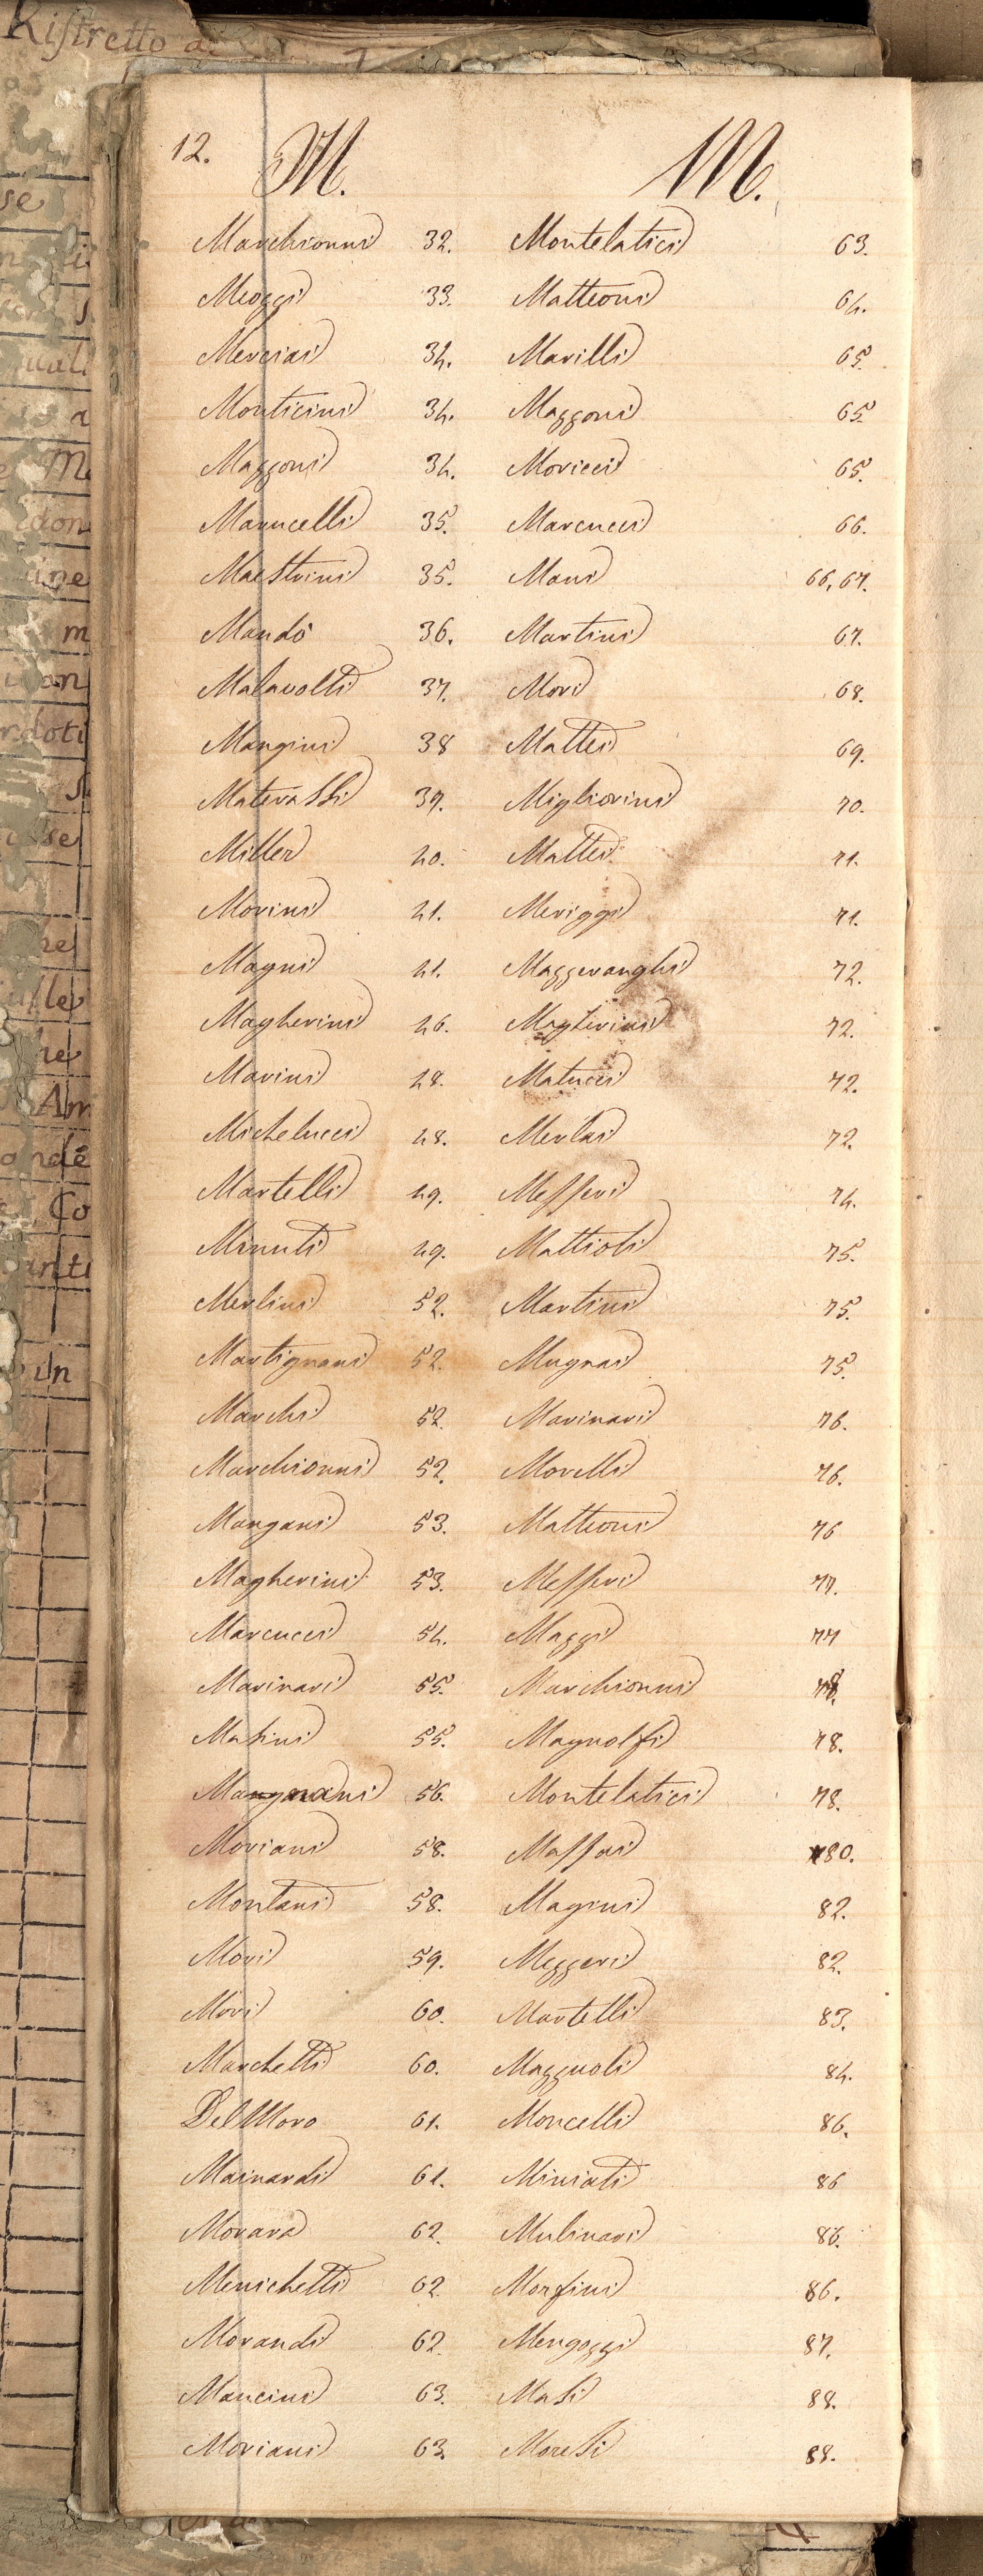 Ristretto
12.
M.
Marchionni 32.
Meozzi 33.
Merciai 34.
Monticini 34.
Mazzoni 34.
Marucelli 35.
Maestrini 35.
Mandò 36.
Malavolti 37.
Mangini 38
Materassi 39.
Miller 40.
Morini 41.
Magni 41.
Magherini 46.
Marini 48.
Michelucci 48.
Martelli 49.
Minuti 49.
Merlini 52.
Martignani 52.
Marchi 52.
Marchionni 52.
Mangani 53.
Magherini 53.
Marcucci 54.
Marinari 55.
Masini 55.
56.
Moriani 58.
Montani 58.
Mori 59.
Mori 60.
Marchetti 60.
Del Moro 61.
Mainardi 61.
Morara 62.
Menichetti 62
Morandi 62.
Mancini 63.
Moriani 63.
M.
Montelatici 63.
Matteoni 64.
Marilli 65.
Mazzoni 65.
Moricci 65.
Marcucci 66.
Mani 66, 67.
Martini 67.
Mori 68.
Mattei 69.
Migliorini 70.
Mattei 71.
Meriggi 71.
Mazzeranghi 72.
72.
Matucci 72.
Merlai 72.
Messeri 74.
Mattioli 75.
Martini 75.
Mugnai 75.
Marinari 76.
Morelli 76.
Matteoni 76
Messeri 77.
Mazzi 77
Marchionni 78.
Magnolfi 78.
Montelatici 78.
Massai 80.
Magini 82.
Mezzeri 82.
Martelli 83.
Mazzuoli 84.
Moncelli 86.
Miniati 86
Mulinari 86.
Morfini 86.
Mengozzi 87.
Masi 88.
Moresi 88.